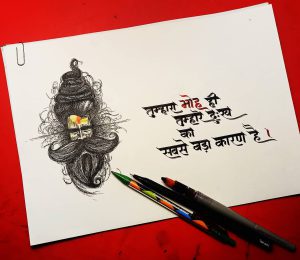 तुम्हारा मोह ही
तुम्हारे दुःख
का
सबसे बड़ा कारण है ।